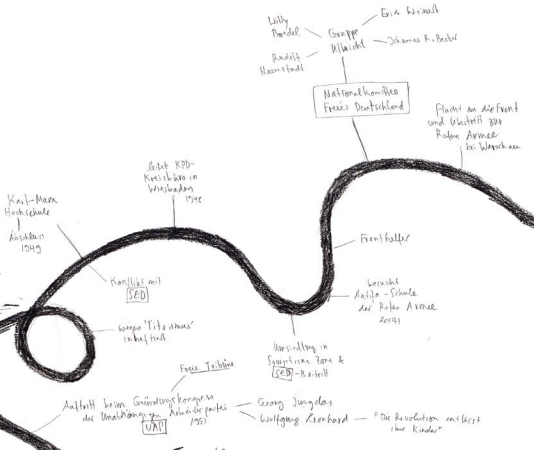 Willy
Bredel
Gruppe
Ulbricht
Erich Weinert
Johannes R. Becher
Rudolf
Nationalkomitee
Freies Deutschland
Flucht an die Front
und Übertritt zur
Roten Armee
bei Warschau
leitet KPD-
Kreisbüro in
Wiesbaden
Karl-Marx
Hochschule
Abschluss
1949
Fronthelfer
Konflikt mit
SED
besucht
Antifa-Schule
der Roten Armee
wegen 'Titoismus'
inhaftiert
Umsiedlung in
Sowjetische Zone &
SED-Beitritt
Freie Tribüne
Auftritt beim Gründungskongress
der Unabhängigen Arbeiterpartei
UAP
1951
Georg Jungclas
Wolfgang Leonhard
"Die Revolution entlässt
ihre Kinder"